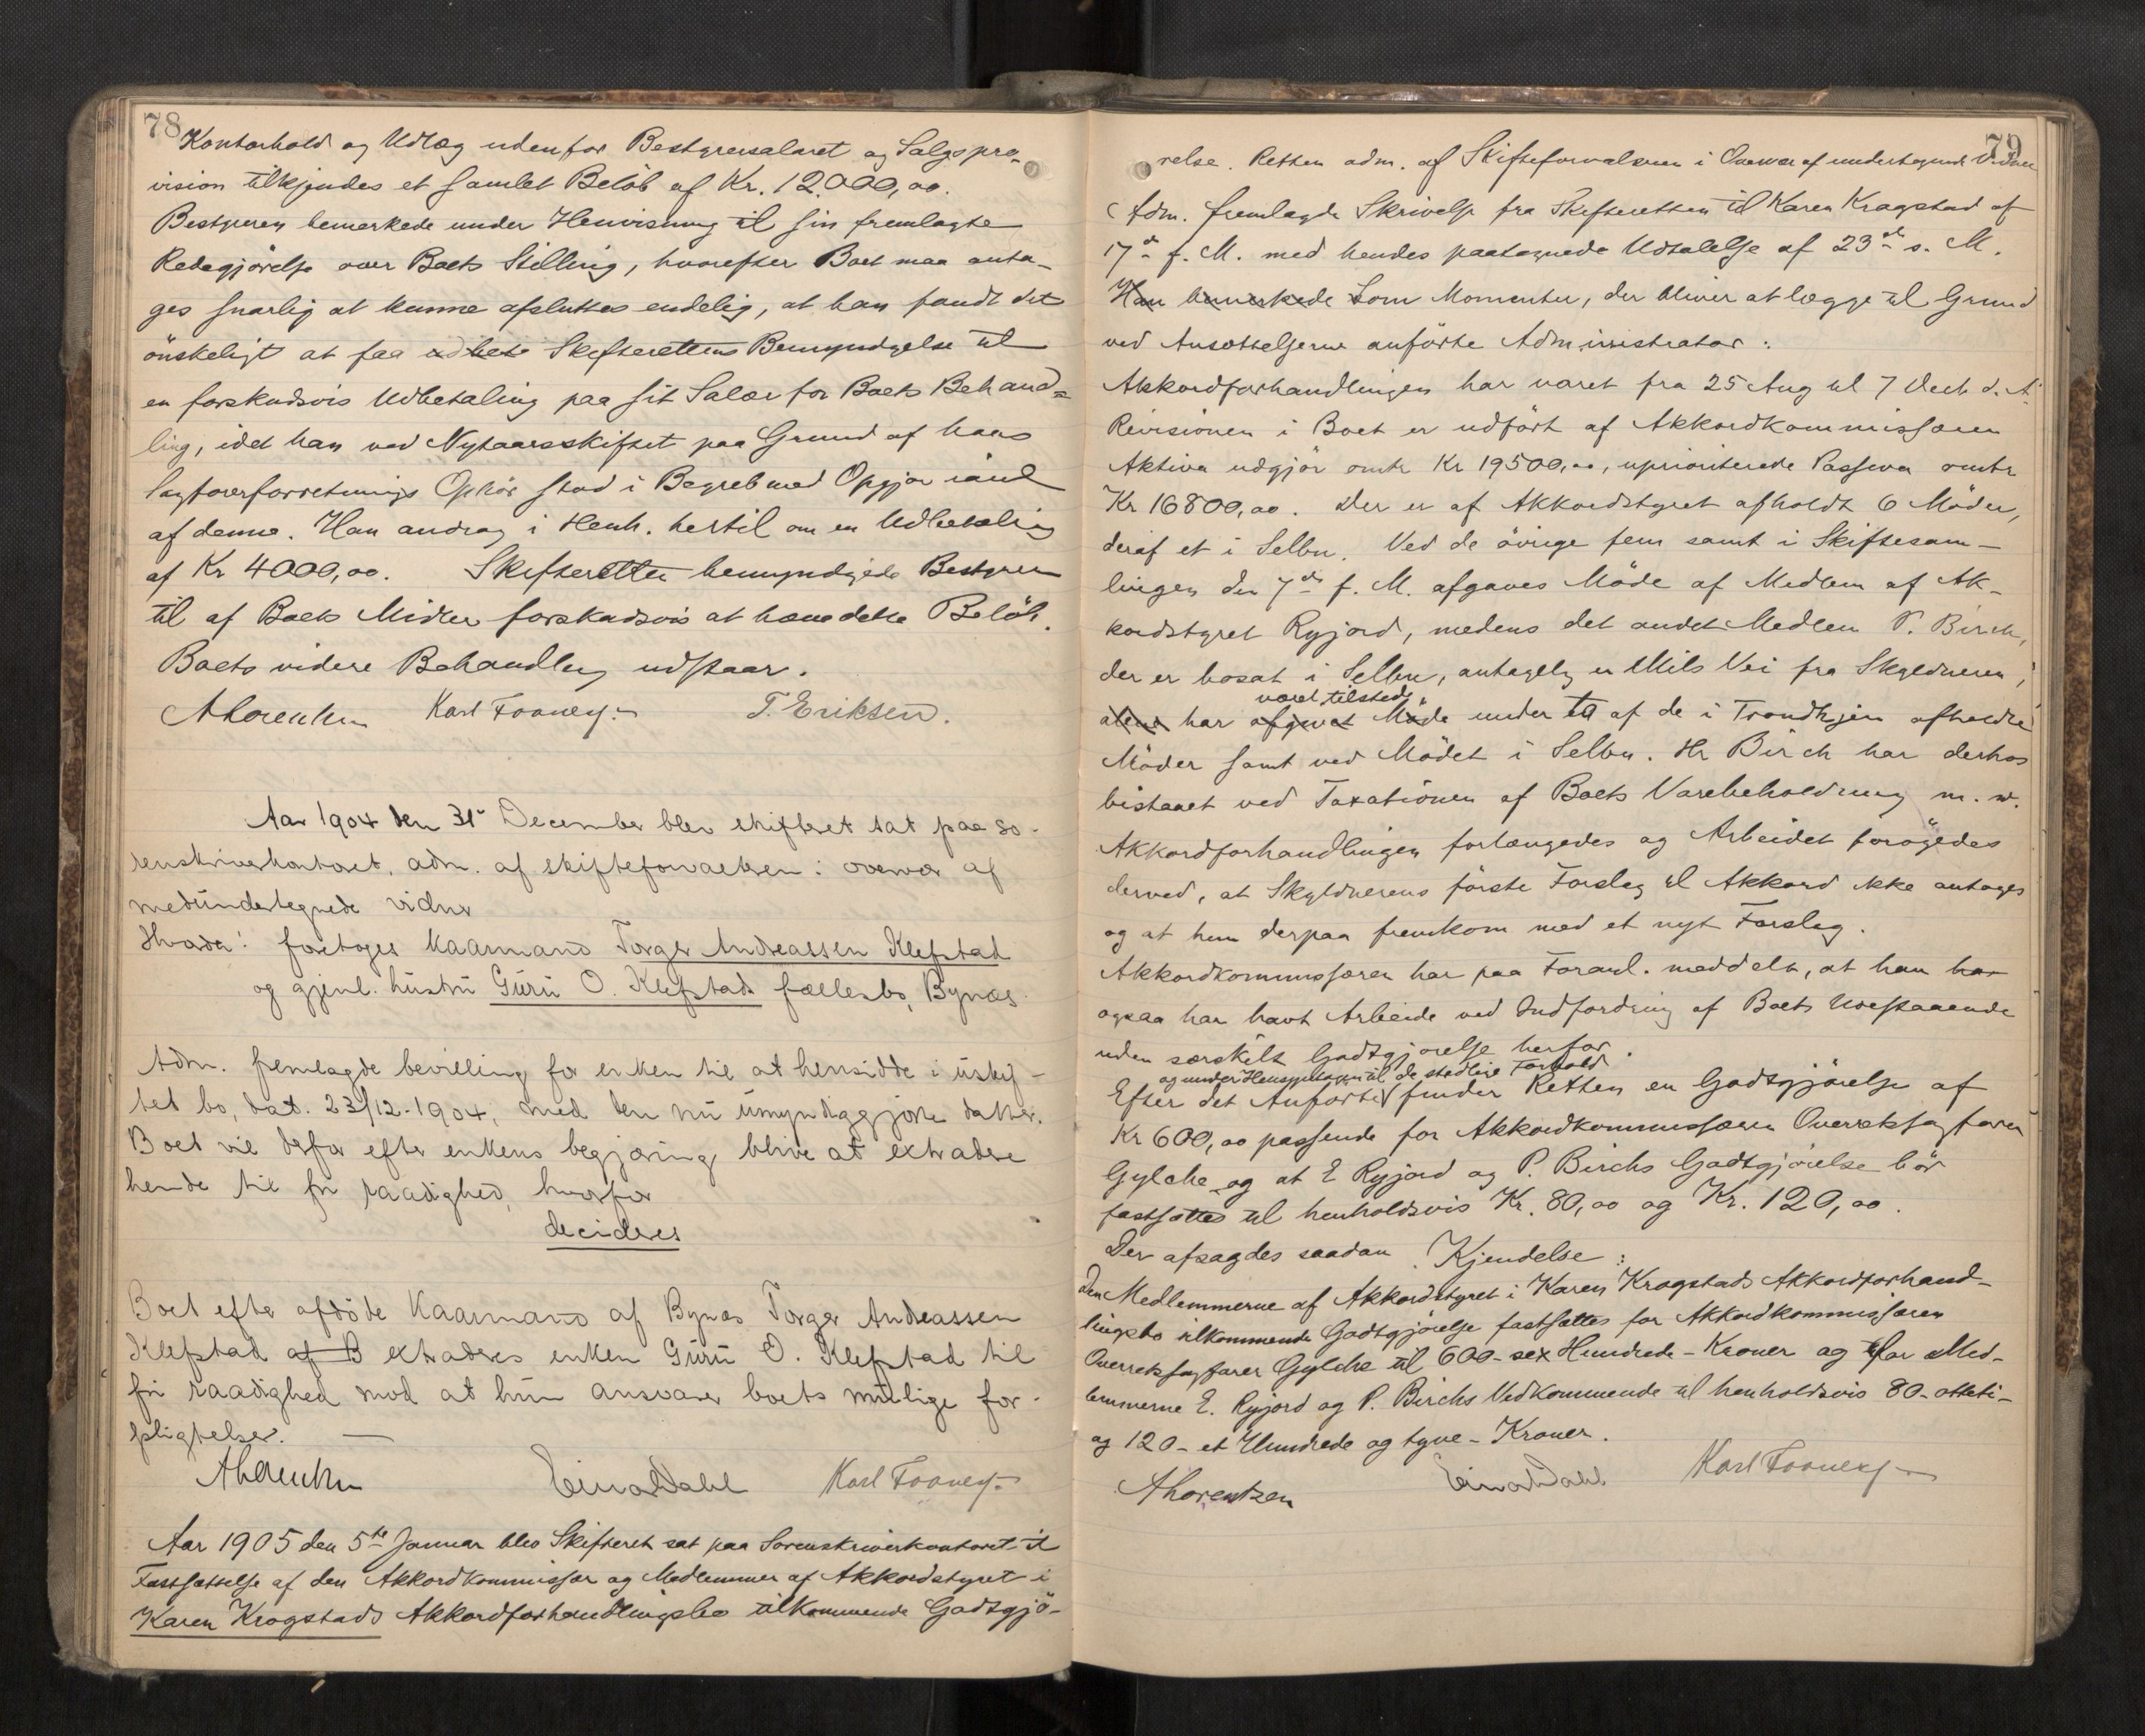 78
Kontorhold og Udlæg udenfor Bestyrersalæret og Salgspro-
vision tilkjendes et samlet Beløb af Kr. 12000,00.
Bestyreren bemærkede under Henvisning til sin fremlagte
Redegjörelse over Boets Stilling, hvorefter Boet maa anta-
ges snarlig at kunne afsluttes endelig, at han fandt det
önskeligt at faa Skifterettens Bemyndigelse til
en forskudsvis Udbetaling paa sit Salær for Boets Behand-
ling, idet han ved Nytaarsskiftet paa Grund af hans
Sagförerforretnings Ophör stod i Begreb med Opgjör
af denne. Han androg i Henh. hertil om en Udbetaling
af Kr 4000,00. Skifteretten bemyndigede Bestyreren
til af Boets Midler forskudsvis at hæve dette Belöb.
Boets videre Behandling udstaar.
ALorentzen Karl Fooney T. Eriksen.
Aar 1904 den 31 December blev skifteret sat paa so-
renskriverkontoret, adm. af skifteforvalteren i overvær af
medundertegnede vidner
Hvorda: foretoges Kaarmand Torger Andreassen Klefstad
og gjenl. hustru Guru O. Klefstads fællesbo, Bynæs.
Adm. fremlagde bevilling for enken til at hensidde i uskif-
tet bo, dat. 23/12-1904, med den nu umyndiggjorte datter.
Boet vil derfor efter enkens begjæring blive at extradere
hende til fri raadighed, hvorfor
decideres
Boet efter afdöde Kaarmand af Bynæs Torger Andreassen
Klefstad af B extraderes enken Guru O. Klefstad til
fri raadighed mod at hun ansvarer boets mulige for-
pligtelser.
ALorentzen Einar Dahl Karl Fooney
Aar 1905 den 5te Januar blev Skifteret sat paa Sorenskriverkontoret til
Fastsættelse af den Akkordkommissær og Medlemmer af Akkordstyret i
Karen Krogstads Akkordforhandlingsbo tilkommende Godtgjö-
79
relse. Retten adm. af Skifteforvalteren i Overvær af undertegnede Vidner
Adm. fremlagde Skrivelse fra Skifteretten til Karen Krogstad af
17de f. M. med hendes paategnede Udtalelse af 23de s. M.
Han bemærkede Som Momenter, der bliver at lægge til Grund
ved Ansættelserne anförte Administrator:
Akkordforhandlingen har varet fra 25 Aug til 7 Decb d. A.
Revisionen i Boet er udfört af Akkordkommissæren
Aktiva udgjör omtr Kr 19500,00, uprioriterede Passiva omtr
Kr 16800,00. Der er af Akkordstyret afholdt 6 Möder,
deraf et i Selbu. Ved de övrige fem samt i Skiftesam-
lingen den 7de f. M. afgaves Möde af Medlem af Ak-
kordstyret Ryjord, medens det andet Medlem P. Birch,
der er bosat i Selbu, antagelig en Mils Vei fra Skyldneren,
været tilstede
alene har afgivet Möde under to af de i Trondhjem afholdte
Möder samt ved Mödet i Selbu. Hr Birch har derhos
bistaaet ved Taxationen af Boets Varebeholdning m. v.
Akkordforhandlingen forlængedes og Arbeidet forögedes
derved, at Skyldnerens förste Forslag til Akkord ikke antoges
og at hun derpaa fremkom med et nyt Forslag.
Akkordkommissæren har paa Foranl. meddelt, at han har
ogsaa har havt Arbeide ved Indfordring af Boets Udestaaende
uden særskilt Godtgjörelse herfor.
og under Hensyntagen til de stedlige Forhold
Efter det Anförte finder Retten en Godtgjörelse af
Kr 600,00 passende for Akkordkommissæren Overretssagförer
Gylche og at E Ryjord og P. Birchs Godtgjörelse bör
fastsættes til henholdsvis Kr. 80,00 og Kr. 120,00.
Der afsagdes saadan Kjendelse:
Den Medlemmerne af Akkordstyret i Karen Krogstads Akkordforhand-
lingsbo tilkommende Godtgjörelse fastsættes for Akkordkommissæren
Overretssagförer Gylche til 600- sex Hundrede - Kroner og for Med-
lemmerne E. Ryjord og P. Birchs Vedkommende til henholdsvis 80- otteti-
og 120- et Hundrede og tyve - Kroner.
ALorentzen Einar Dahl Karl Fooney